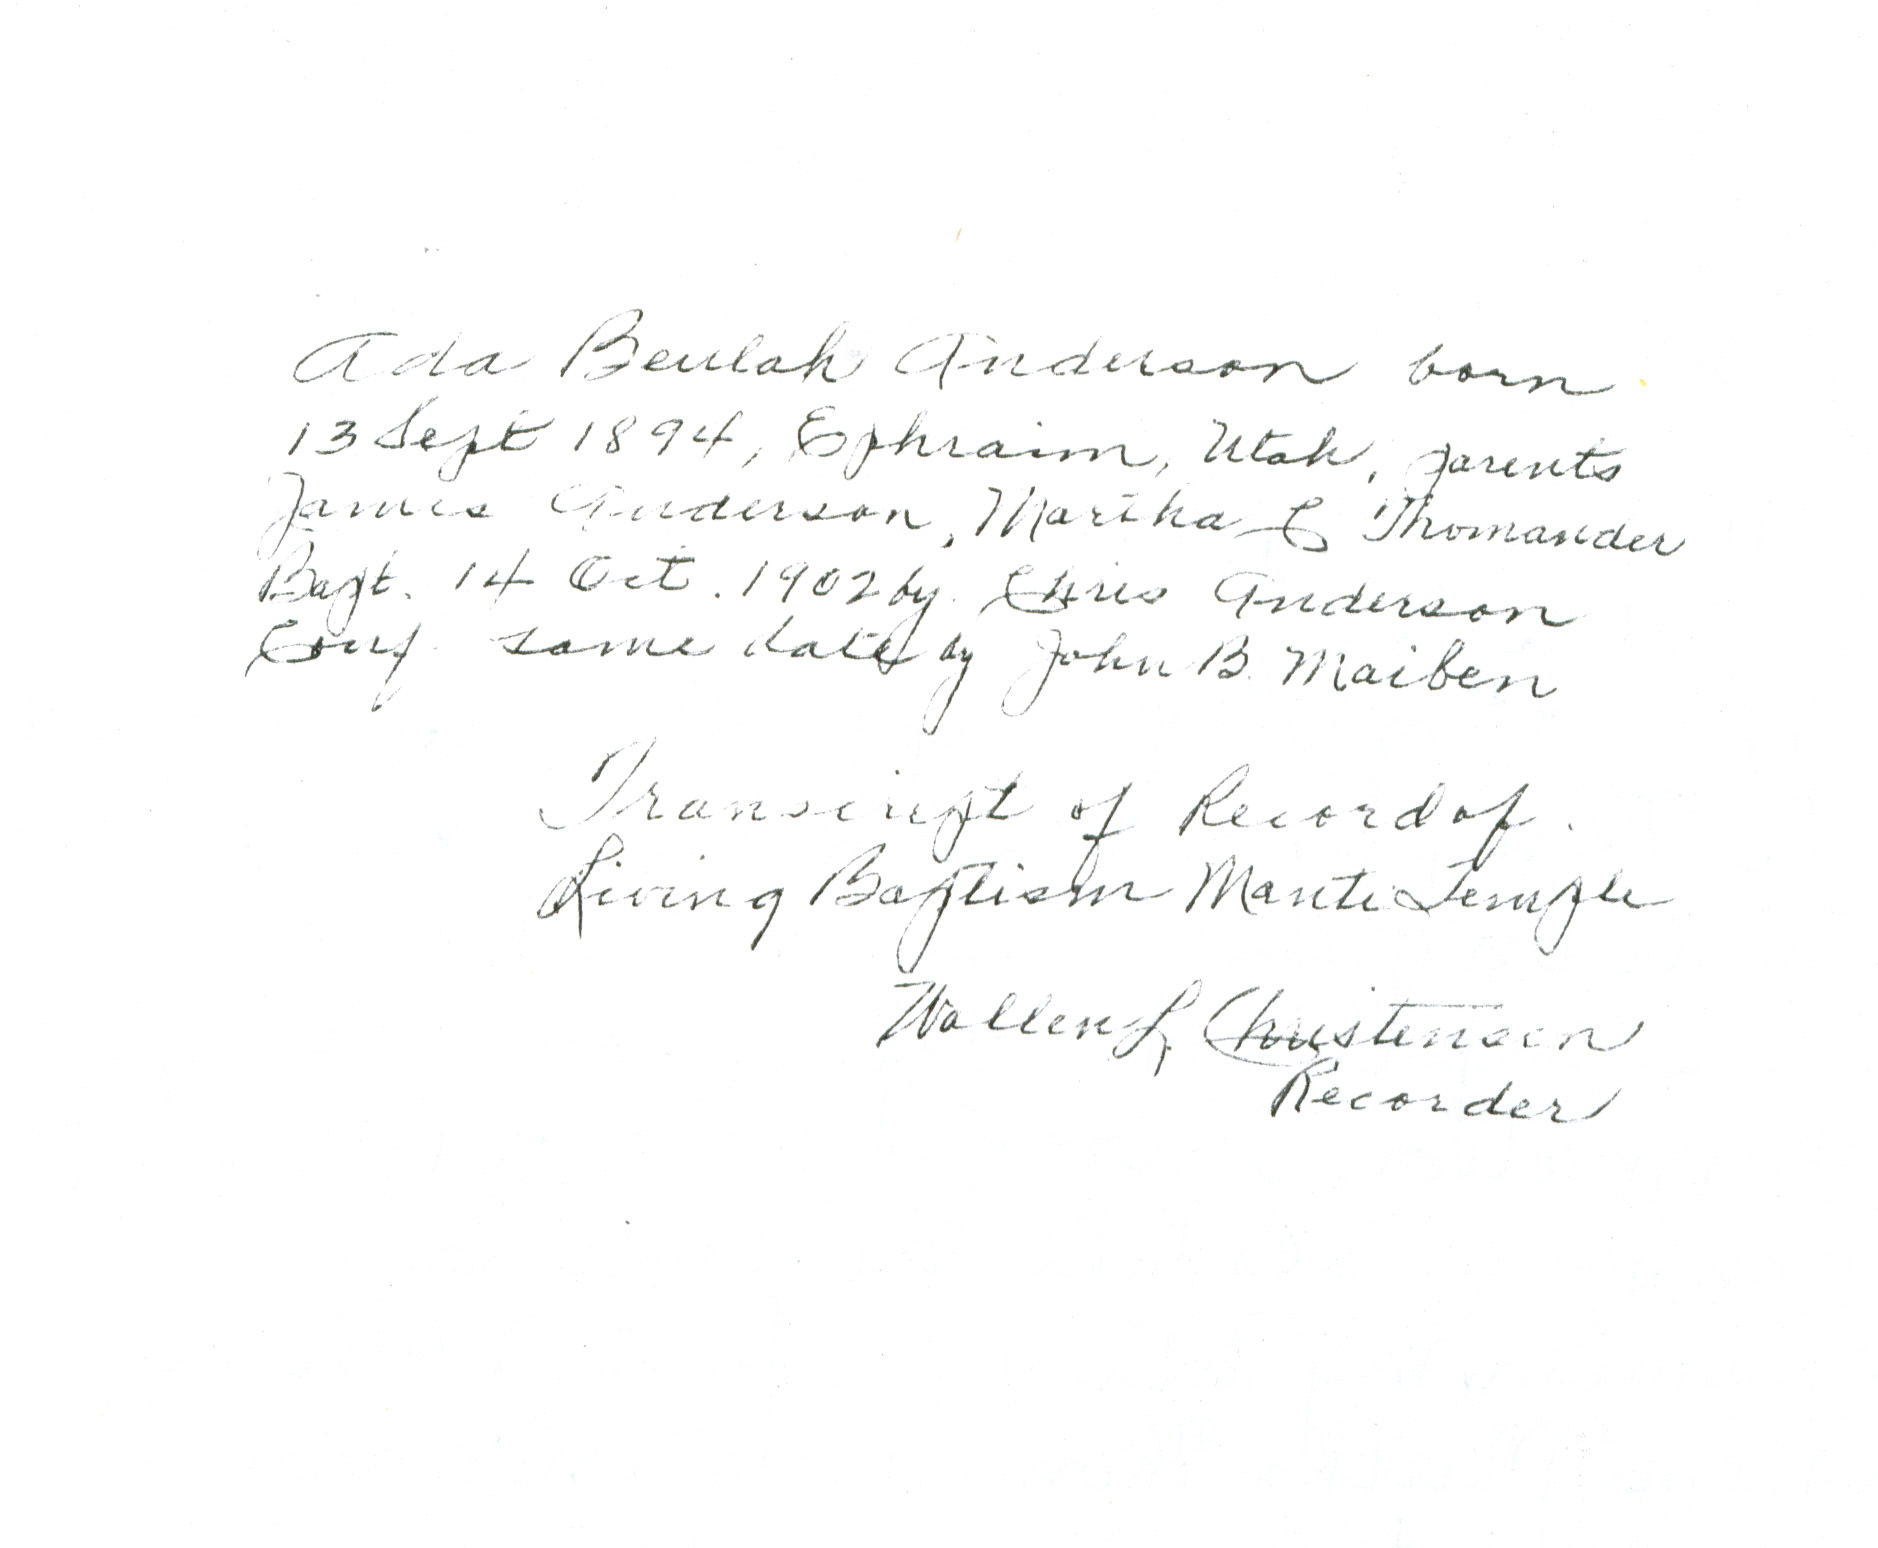 Ada Beulah Anderson born
13 Sept 1894, Ephraim, Utah, parents
James Anderson, Martha C Thomander
Bapt. 14 Oct. 1902 by Chris Anderson
Conf. same date by John B. Maiben
Transcript of Record of
Living Baptism Manti Temple
Wallen L. Christensen
Recorder